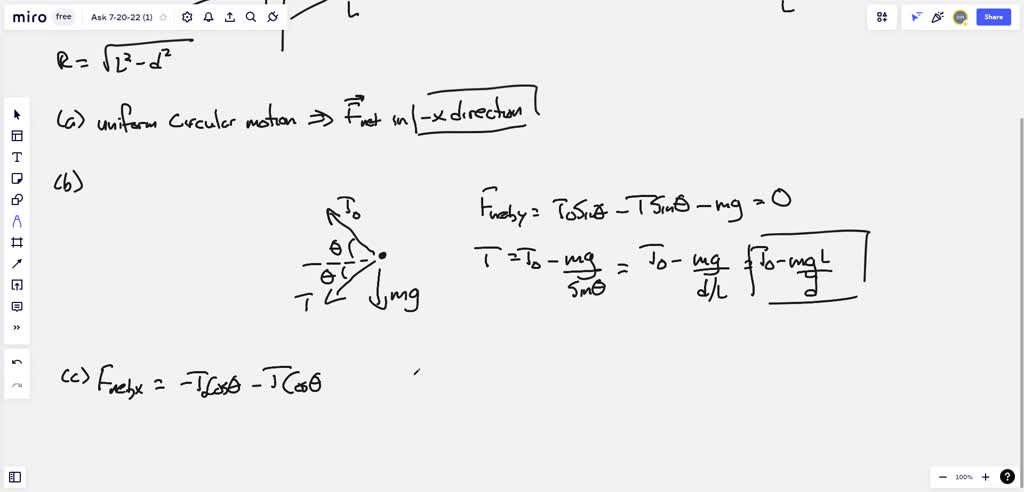 miro free Ask 7-20-22 (1) Share
L
L
R = √L² - d²
(a) uniform Circular motion ⇒ F⃗net in -x direction
(b)
T₀
θ
θ
T
mg
Fnet,y = T₀Sinθ - TSinθ - mg = 0
T = T₀ - mg/Sinθ = T₀ - mg/d/L = T₀ - mgL/d
(c) Fnet,x = -T₀Cosθ - TCosθ
100%